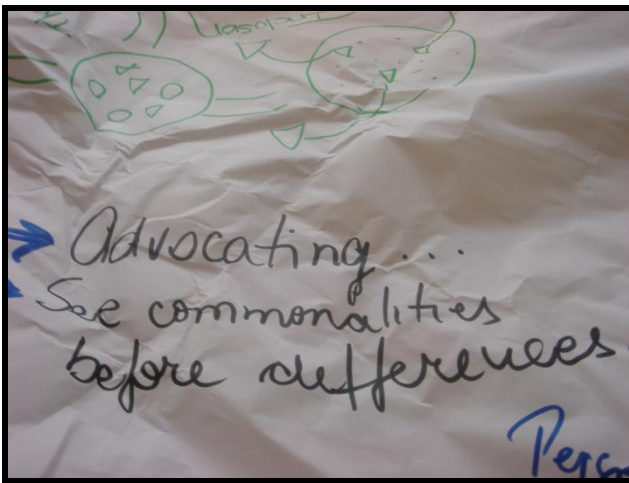 Advocating...
See commonalities
before differences